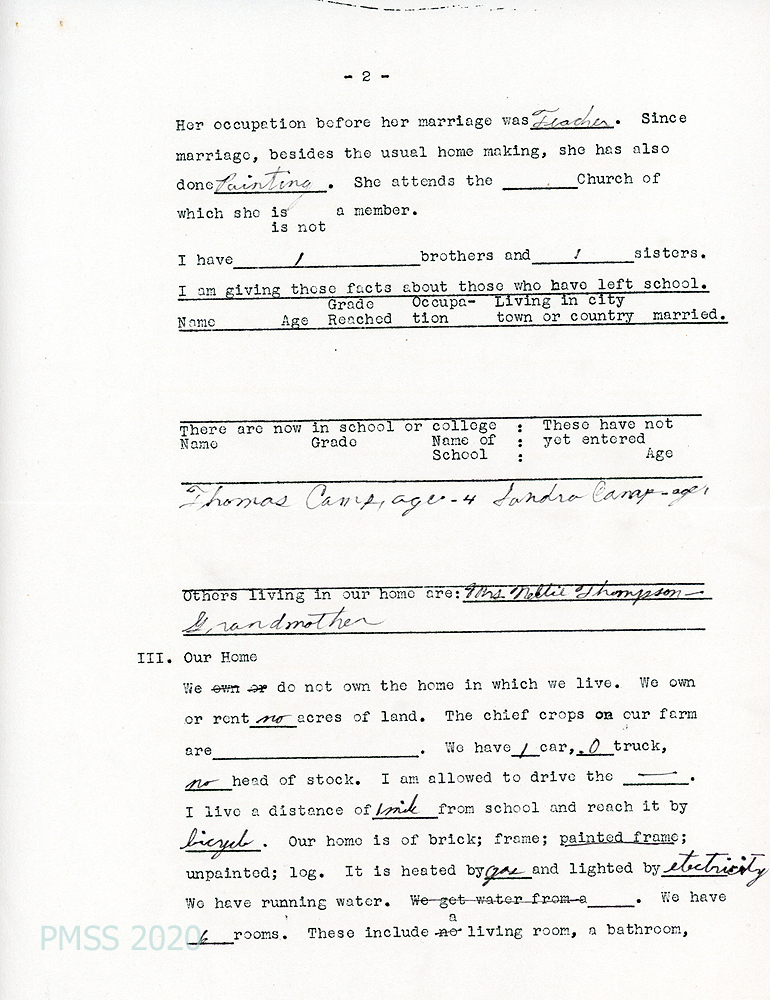 - 2 -
Her occupation before her marriage was Teacher. Since
marriage, besides the usual home making, she has also
done Painting. She attends the ______ Church of
which she is a member.
is not
I have 1 brothers and 1 sisters.
I am giving these facts about those who have left school.
Grade Occupa- Living in city
Name Age Reached tion town or country married.
There are now in school or college : These have not
Name Grade Name of : yet entered
School : Age
Thomas Camp, age - 4 Sandra Camp - age 1
Others living in our home are: Mrs. Nettie Thompson -
Grandmother
III. Our Home
We own or do not own the home in which we live. We own
or rent no acres of land. The chief crops on our farm
are ______. We have 1 car, 0 truck,
no head of stock. I am allowed to drive the —.
I live a distance of 1 mile from school and reach it by
bicycle. Our home is of brick; frame; painted frame;
unpainted; log. It is heated by gas and lighted by electricity
We have running water. We get water from a ______. We have
6 rooms. These include no a living room, a bathroom,
PMSS 2020